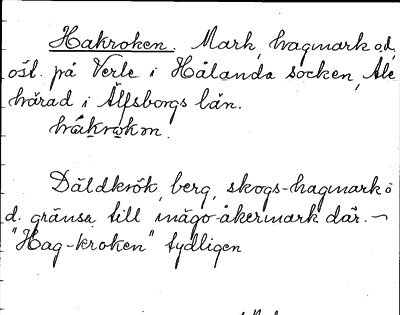 Hakroken. Mark, hagmark o.d.,
östl. på Verle i Hålanda socken, Ale
härad i Älfsborgs län.
håkrokən.
Däldkrök, berg, skogs-hagmark o
d. gränsa till inägo-åkermark där. ~
"Hag-kroken" tydligen